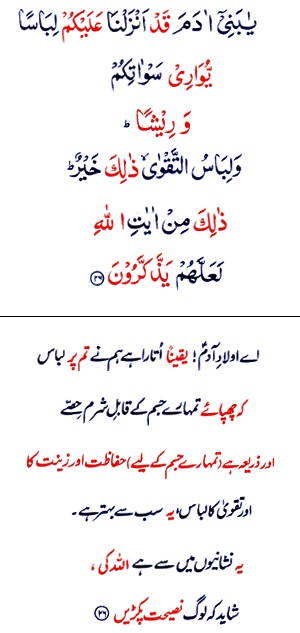 يٰبَنِىْۤ اٰدَمَ قَدْ اَنْزَلْنَا عَلَيْكُمْ لِبَاسًا
يُّوَارِىْ سَوْاٰتِكُمْ
وَ رِيْشًا ؕ
وَلِبَاسُ التَّقْوٰى ۙ ذٰلِكَ خَيْرٌ ؕ
ذٰلِكَ مِنْ اٰيٰتِ اللّٰهِ
لَعَلَّهُمْ يَذَّكَّرُوْنَ ۝۲۶
اے اولادِ آدمؑ! یقیناً اُتارا ہے ہم نے تم پر لباس
کہ چھپائے تمہارے جسم کے قابلِ شرم حصّے
اور ذریعہ ہے (تمہارے جسم کے لیے) حفاظت اور زینت کا
اور تقویٰ کا لباس، یہ سب سے بہتر ہے۔
یہ نشانیوں میں سے ہے اللہ کی،
شاید کہ لوگ نصیحت پکڑیں ۝۲۶